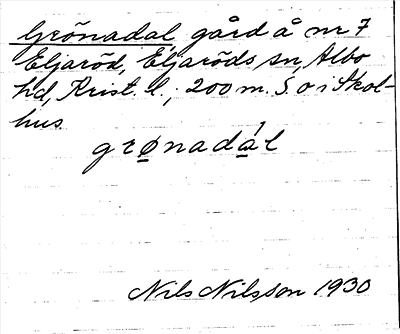 Grönadal, gård å nr 7
Eljaröd, Eljaröds sn, Albo
hd, Krist. l.; 200 m. S o i Skol-
hus.
grønada̲´l
Nils Nilsson 1930